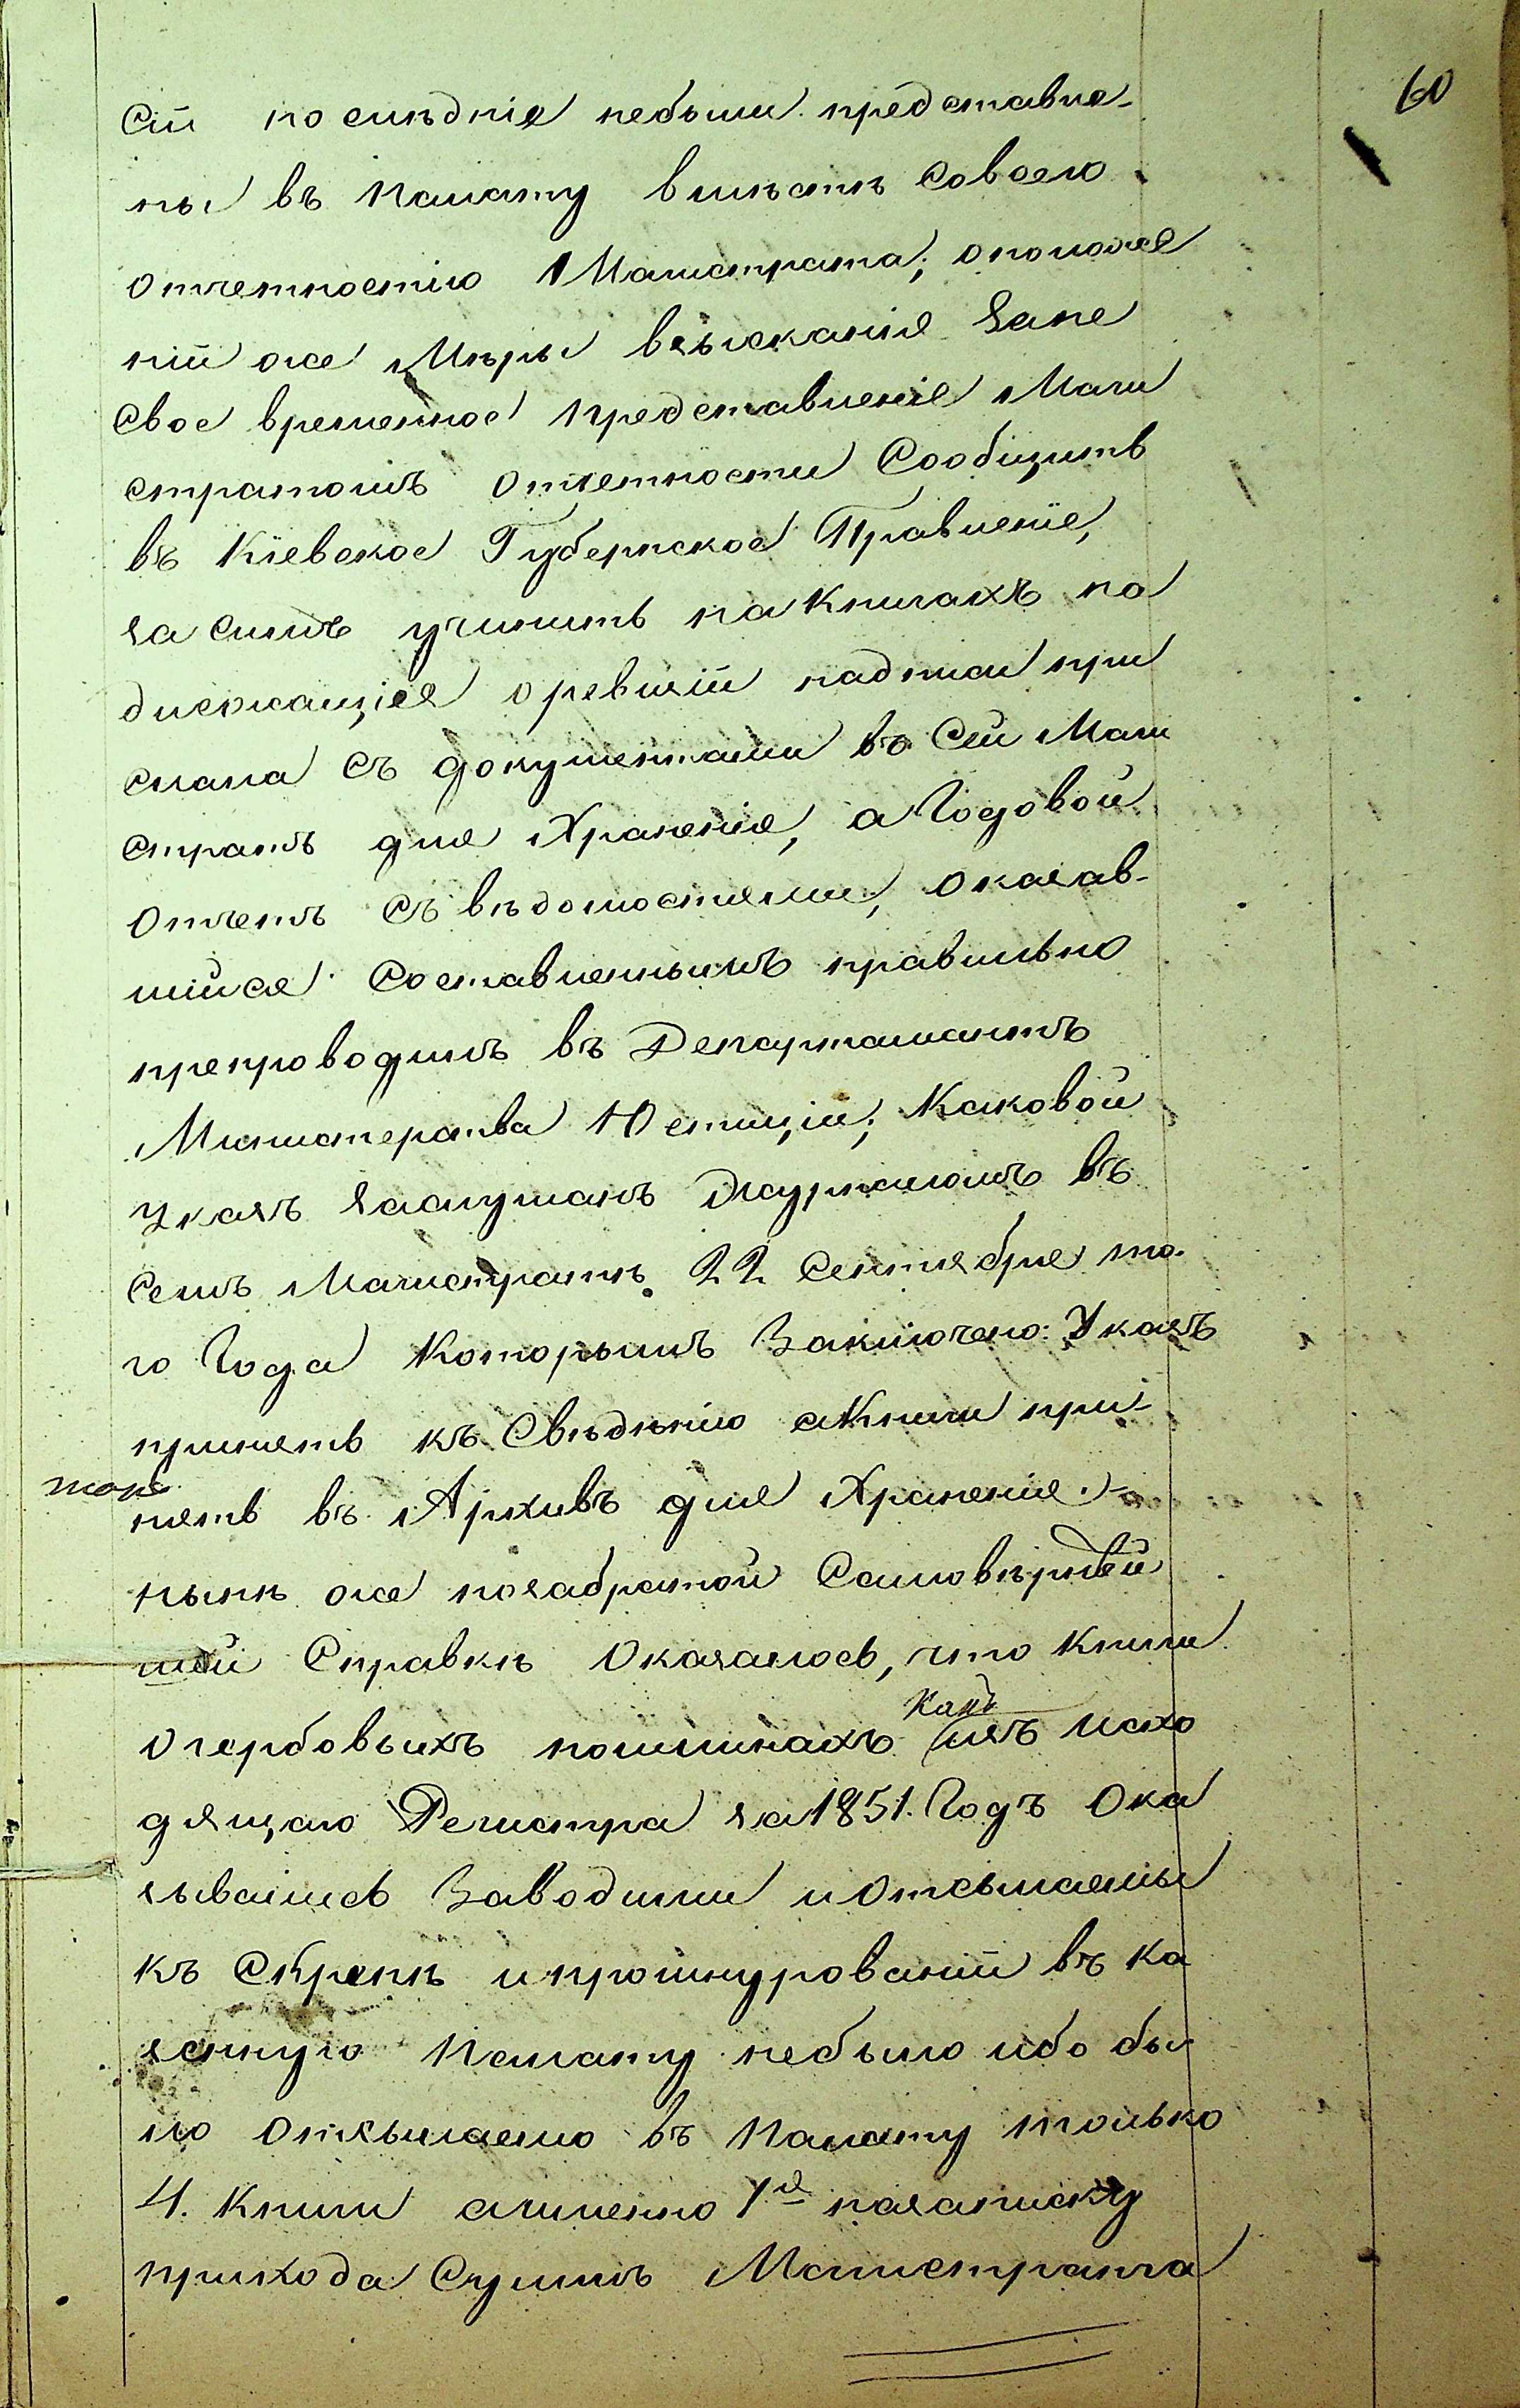 60
сти последніе небыли представле-
ны въ Палату вместе Совсею
отчетностію Магистрата; оположе
ніи же Меры взысканія Зане
Свое временное представленіе Маги
стратомъ отчетности Сообщить
въ Кіевское Губернское Правленіе,
за симъ учинить на Книгахъ по
длежащіея оревизіи надписи при
слала съ документами въ Сей Маги
стратъ для Храненія, а Годовой
отчетъ съ ведомостями, оказав-
шійся Составленнымъ правильно
препроводилъ въ Департаментъ
Министерства Юстиціи; Каковой
указъ Заслушанъ Журналомъ въ
семъ Магистрате 22 Сентября то-
го Года Которымъ Заключено: Указъ
принять къ Сведенію а Книги при-
тоже
нять въ Архивъ для Храненія.-
ныне же позабратой Самоверней
шей Справке Оказалось, что Книги
Какъ
о гербовыхъ пошлинахъ изъ исхо
дящаго Регистра за 1851. Годъ Ока
зывались Заводими и отсылаемы
къ Скрепе и прошнурованіи въ ка
зенную Палату небыло ибо бы-
ло отсылаемо въ Палату только
4. Книги аименно 1я назаписку
прихода Суммъ Магистрата